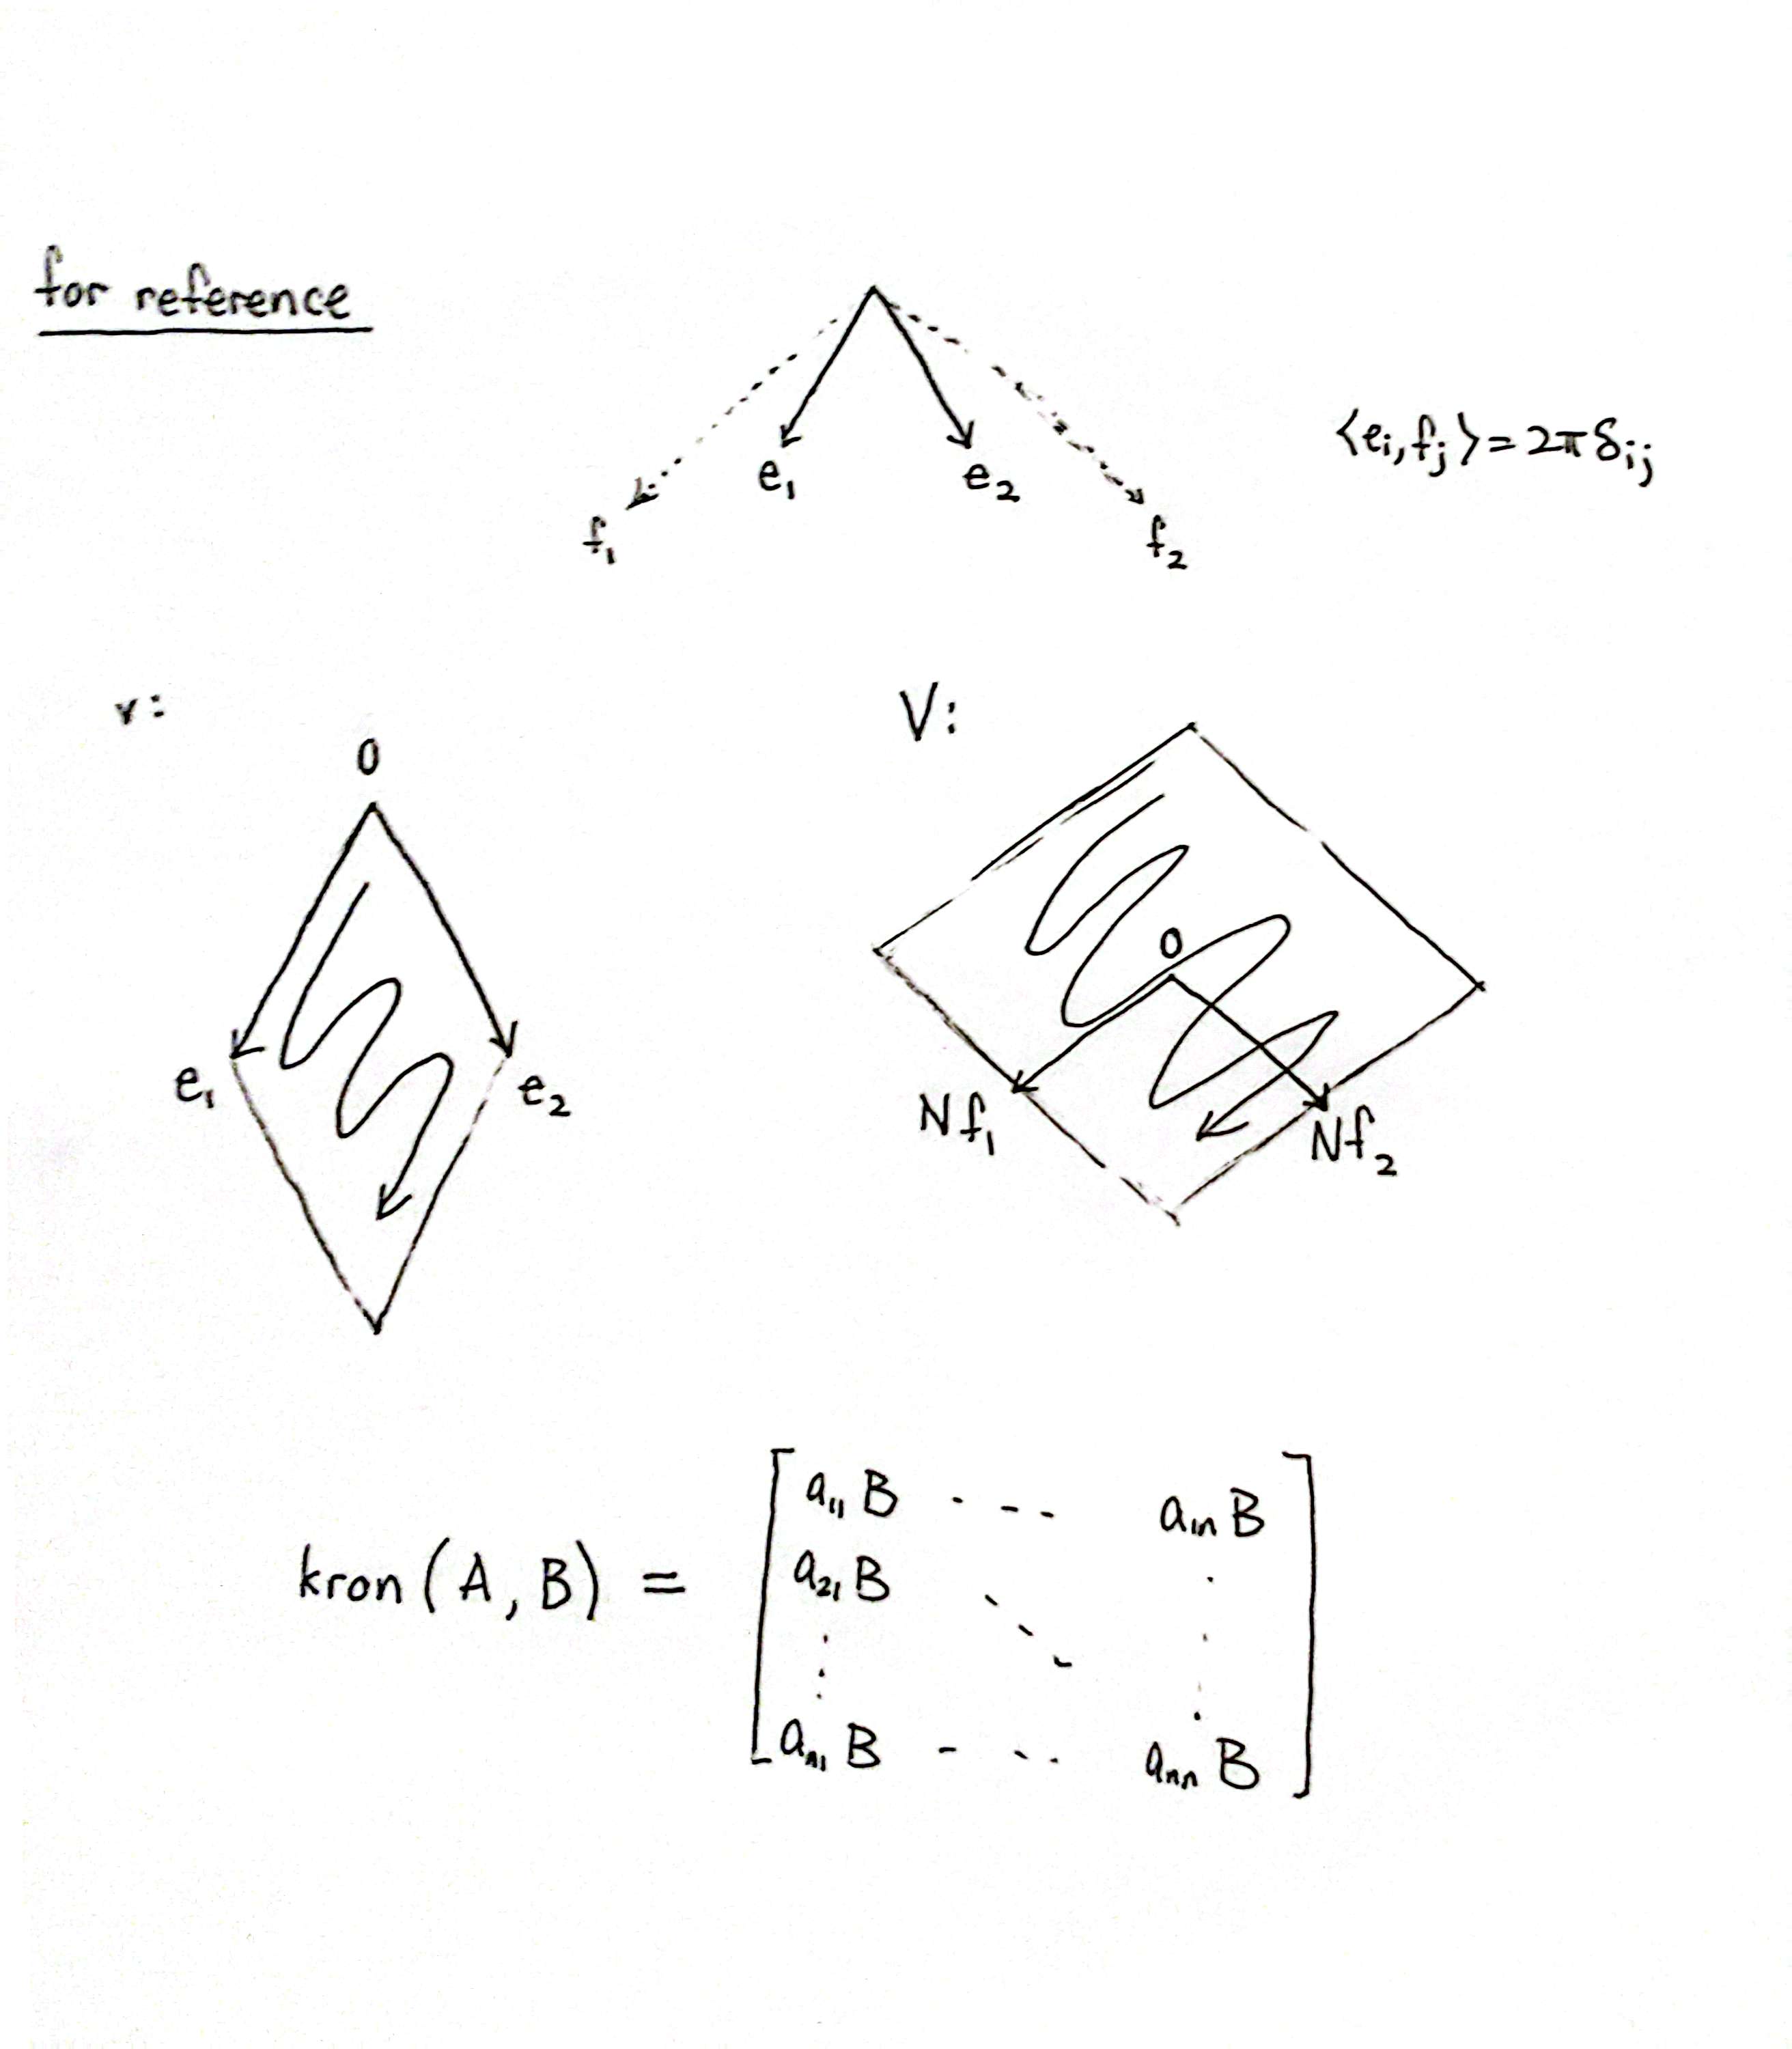 for reference
e₁ e₂
f₁ f₂
⟨eᵢ, fⱼ⟩ = 2πδᵢⱼ
v: V:
0
0
e₁ e₂
Nf₁ Nf₂
kron(A, B) =
a₁₁B - - - a₁ₙB
a₂₁B
aₙ₁B - - - aₙₙB